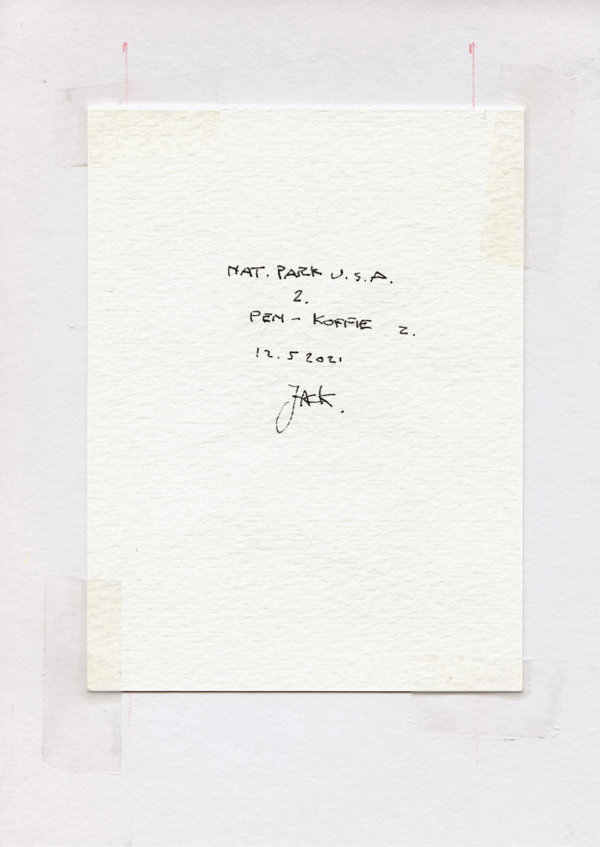 NAT. PARK U.S.A.
2.
PEN - KOFFIE 2.
12.5 2021
JACK.